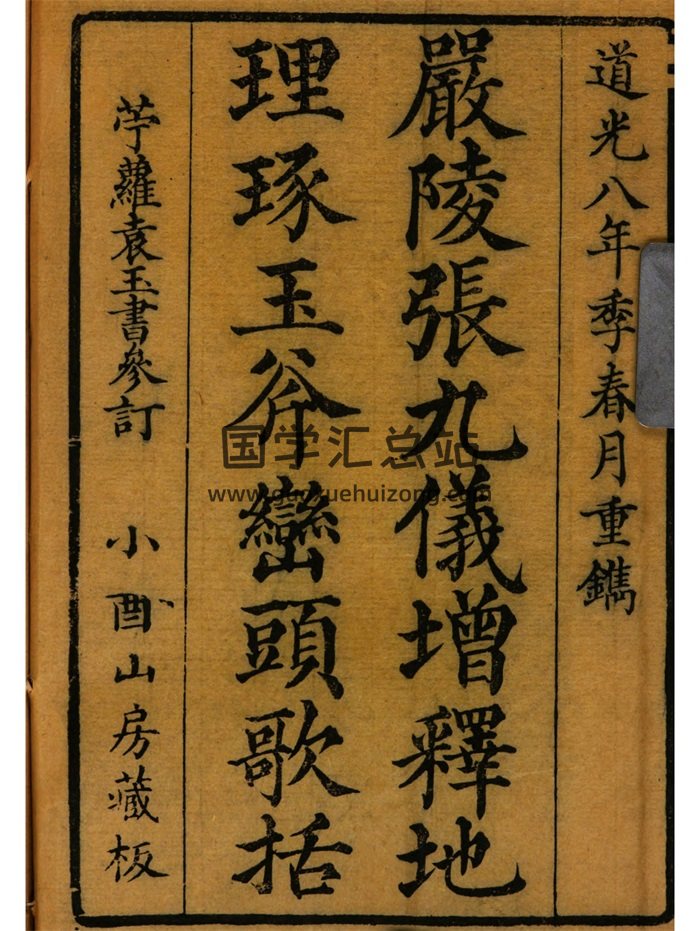 道光八年季春月重鐫
嚴陵張九儀增釋地
理琢玉斧巒頭歌括
苧蘿袁玉書參訂
小酉山房藏板
国学汇总站
www.guoxuehuizong.com